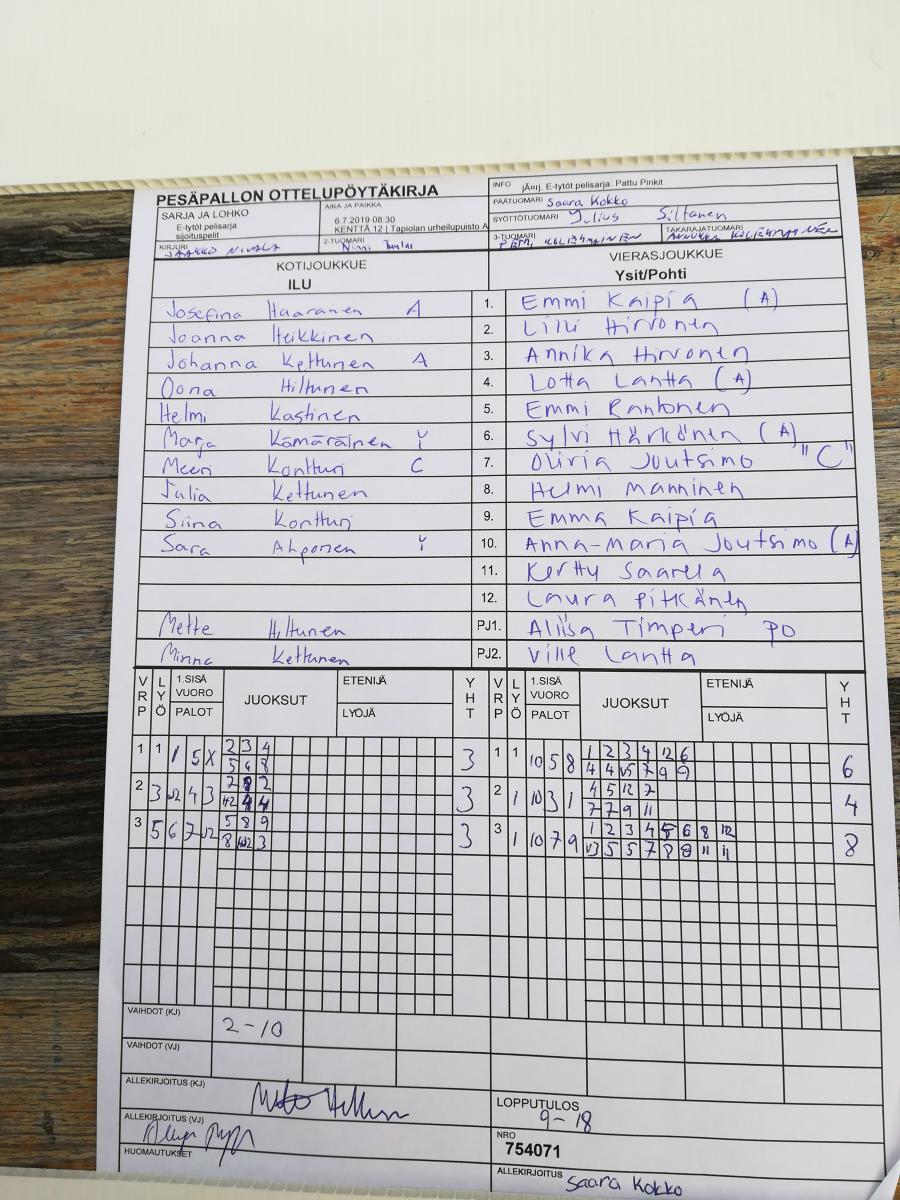 PESÄPALLON OTTELUPÖYTÄKIRJA
INFO jÃ¤rj. E-tytöt pelisarja: Pattu Pinkit
SARJA JA LOHKO
E-tytöt pelisarja
sijoituspelit
AIKA JA PAIKKA
6.7.2019 08:30
KENTTÄ 12 | Tapiolan urheilupuisto A
PÄÄTUOMARI Saara Kokko
SYÖTTÖTUOMARI Julius Siltanen
KIRJURI JAAKKO NIVALA
2-TUOMARI Ninni
3-TUOMARI KOLIEHMAINEN
TAKARAJATUOMARI ANNUKKA KOLIEHMAINEN
KOTIJOUKKUE
ILU
VIERASJOUKKUE
Ysit/Pohti
Josefina Haaranen A 1. Emmi Kaipia (A)
Joanna Heikkinen 2. Lilli Hirvonen
Johanna Kettunen A 3. Annika Hirvonen
Oona Hiltunen 4. Lotta Lantta (A)
Helmi Kastinen 5. Emmi Rantonen
Marja Kämäräinen Y 6. Sylvi Härkönen (A)
Meeri Kontturi C 7. Olivia Joutsimo "C"
Julia Kettunen 8. Helmi Manninen
Siina Kontturi 9. Emma Kaipia
Sara Ahponen Y 10. Anna-Maria Joutsimo (A)
11. Kerttu Saarela
12. Laura Pitkänen
Mette Hiltunen PJ1. Aliisa Timperi PO
Minna Kettunen PJ2. Ville Lantta
VRP LYÖ 1.SISÄ VUORO PALOT JUOKSUT ETENIJÄ LYÖJÄ YHT VRP LYÖ 1.SISÄ VUORO PALOT JUOKSUT ETENIJÄ LYÖJÄ YHT
1 1 1 5 X 2 3 4 3 1 1 10 5 8 1 2 3 4 12 6 6
5 6 8 4 4 V5 7 9 9
2 3 4 3 3 2 1 10 3 1 4 5 12 7 4
7 7 9 11
3 5 6 7 5 8 9 3 3 1 10 7 9 1 2 3 4 5 6 8 12 8
8 3 V3 5 5 7 8 8 11 11
VAIHDOT (KJ) 2-10
VAIHDOT (VJ)
ALLEKIRJOITUS (KJ)
LOPPUTULOS
9-18
ALLEKIRJOITUS (VJ)
NRO
754071
HUOMAUTUKSET
ALLEKIRJOITUS Saara Kokko